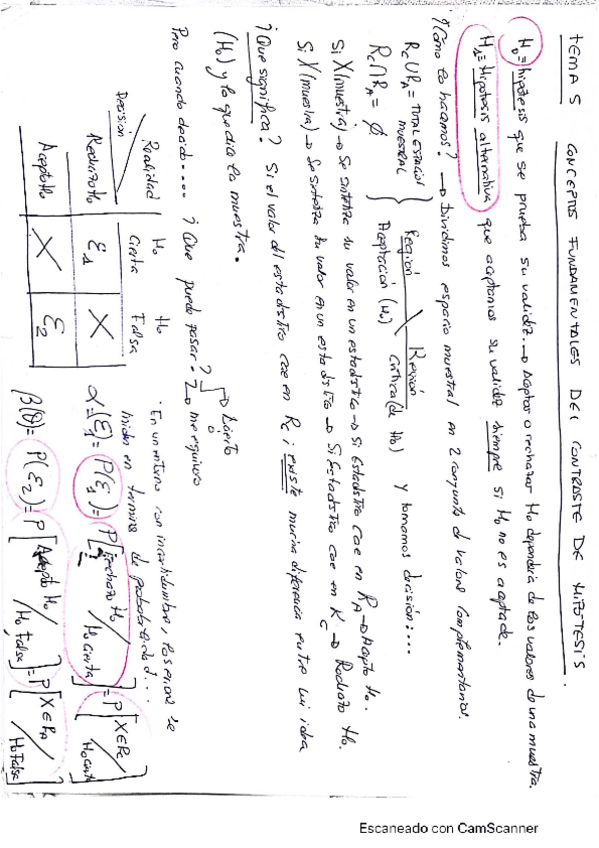 TEMA 5 CONCEPTOS FUNDAMENTALES DEL CONTRASTE DE HIPÓTESIS.
H₀ = hipótesis que se prueba su validez. → Aceptar o rechazar H₀ dependerá de los valores de una muestra.
H₁ = Hipótesis alternativa que aceptamos su validez siempre si H₀ no es aceptada.
¿Cómo lo hacemos? → Dividimos espacio muestral en 2 conjuntos de valores complementarios.
Rc ∪ RA = TOTAL ESPACIO MUESTRAL
Rc ∩ RA = ∅
Región Aceptación (H₀)
Región crítica (de H₀)
y tomamos decisión:...
Si X (muestra) → Se sintetiza su valor en un estadístico → Si Estadístico cae en RA → Acepto H₀.
Si X (muestra) → Se sintetiza su valor en un estadístico → Si estadístico cae en Rc → Rechazo H₀.
¿Que significa? Si el valor del estadístico cae en Rc ; existe mucha diferencia entre mi idea
(H₀) y lo que dice la muestra.
Pero cuando decido.... ¿Que puede pasar? 2
→ Acierto
o
→ me equivoco
Realidad
Decisión
H₀ Cierta
H₀ Falsa
Rechazo H₀ ε₁ X
Acepto H₀ X ε₂
· En un entorno con incertidumbre, los errores se
miden en termino de probabilidad...
α = (ε₁) = P(ε₁) = P[rechazo H₀ / H₀ cierta] = P[X ∈ Rc / H₀ cierta]
β(θ) = P(ε₂) = P[Acepto H₀ / H₀ Falsa] = P[X ∈ RA / H₀ Falsa]
Escaneado con CamScanner